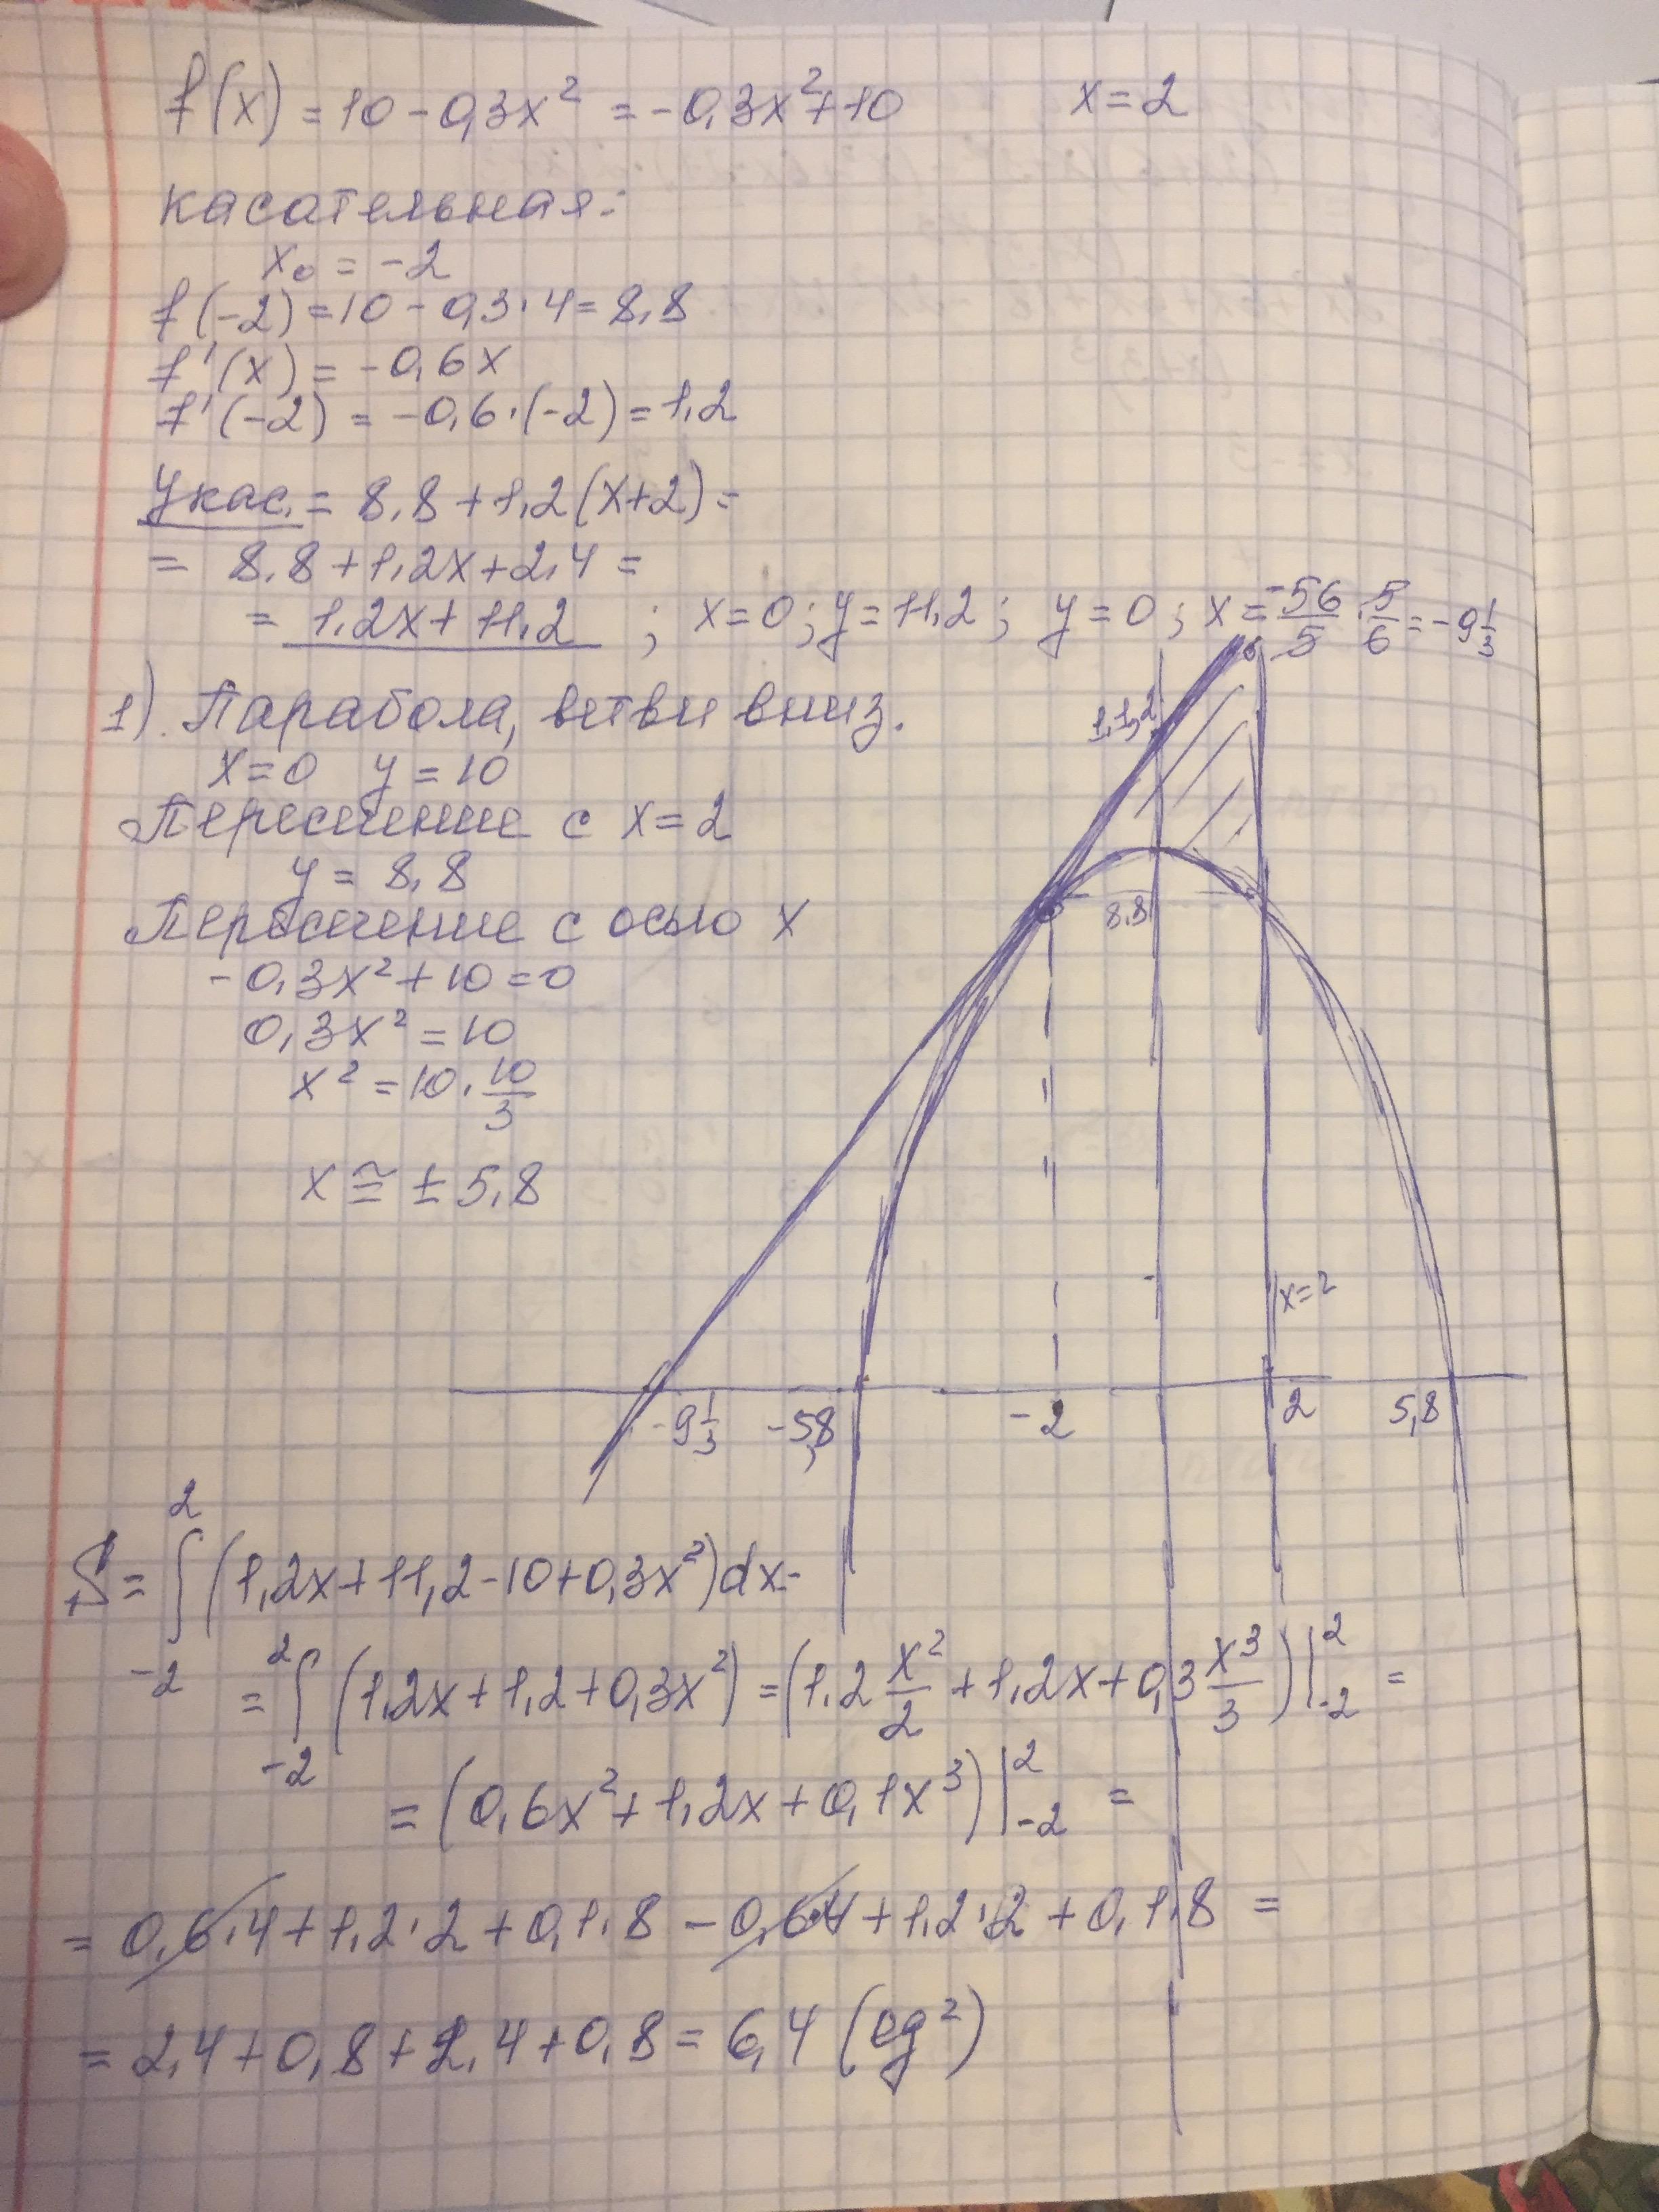 f(x) = 10 - 0,3x² = -0,3x² + 10 x = 2
касательная:
x₀ = -2
f(-2) = 10 - 0,3·4 = 8,8
f'(x) = -0,6x
f'(-2) = -0,6·(-2) = 1,2
yкас. = 8,8 + 1,2(x+2) =
= 8,8 + 1,2x + 2,4 =
= 1,2x + 11,2 ; x=0; y=11,2; y=0; x = -56/5 · 5/6 = -9 1/3
1). Парабола, ветви вниз.
x=0 y=10
Пересечение с x=2
y = 8,8
Пересечение с осью x
-0,3x² + 10 = 0
0,3x² = 10
x² = 10 · 10/3
x ≅ ± 5,8
11,2
8,8
x=2
-9 1/3 -5,8 -2 2 5,8
S = ∫₋₂² (1,2x + 11,2 - 10 + 0,3x²)dx =
= ∫₋₂² (1,2x + 1,2 + 0,3x²) = (1,2 x²/2 + 1,2x + 0,3 x³/3)|₋₂² =
= (0,6x² + 1,2x + 0,1x³)|₋₂² =
= 0,6·4 + 1,2·2 + 0,1·8 - 0,6·4 + 1,2·2 + 0,1·8 =
= 2,4 + 0,8 + 2,4 + 0,8 = 6,4 (ед²)